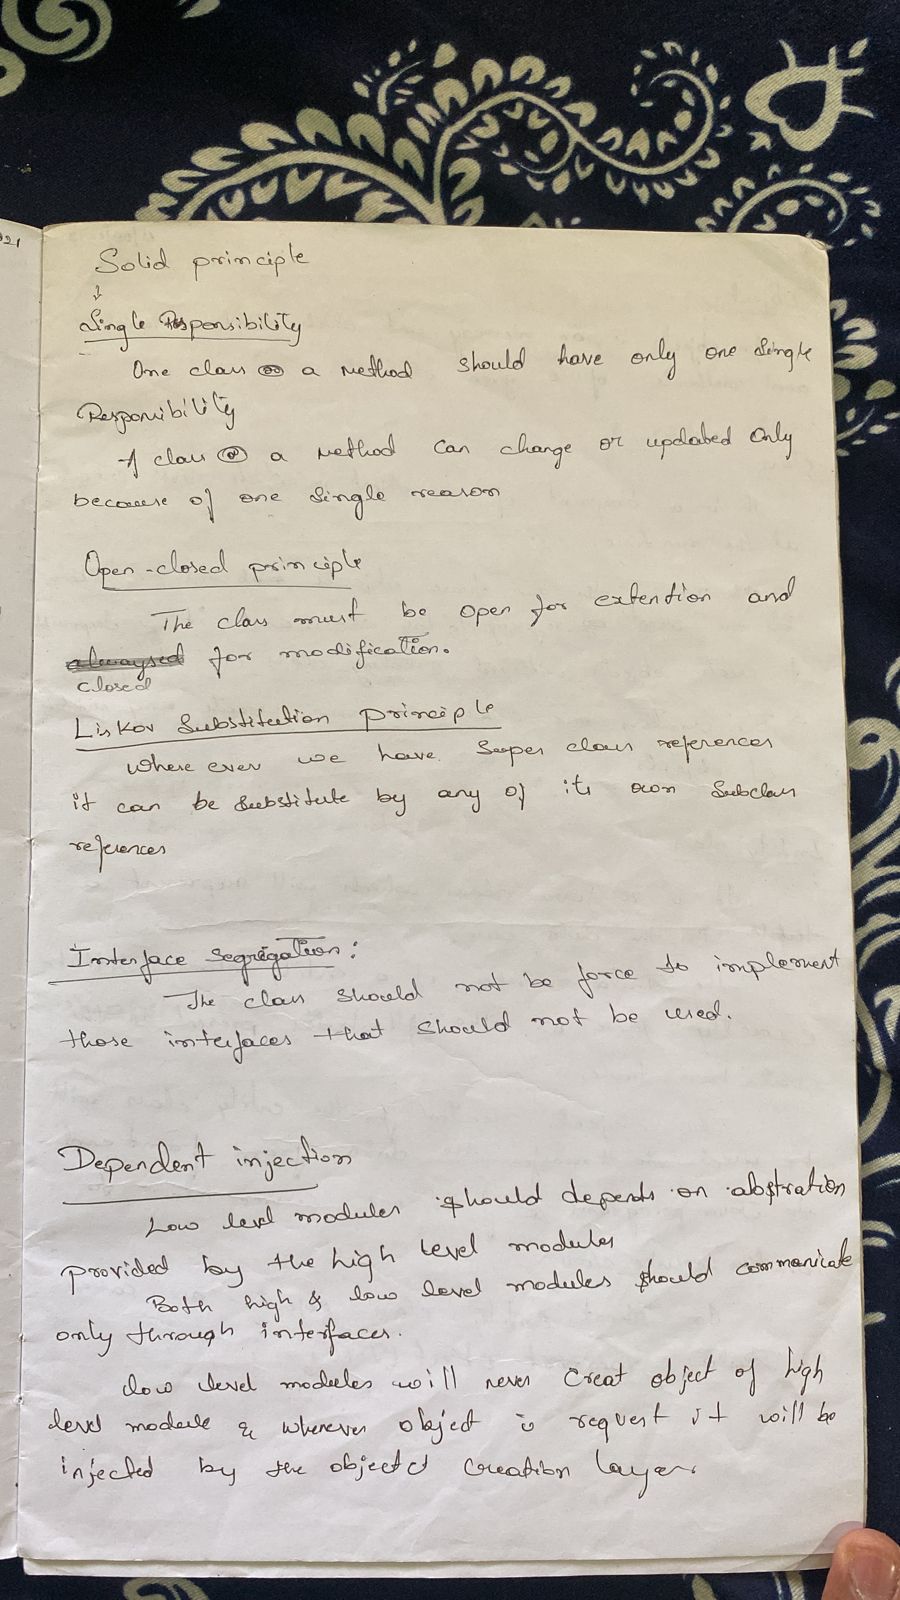 021
Solid principle
↓
Single Responsibility
One class or a method should have only one single
Responsibility
A class or a method can change or updated only
because of one single reason
Open-closed principle
The class must be open for extention and
alwaysed for modification.
closed
Liskov Substitution principle
Where ever we have super class references
it can be substitute by any of its own subclass
references
Interface segregation:
The class should not be force to implement
those interfaces that should not be used.
Dependent injection
Low level modules should depends on abstration
provided by the high level modules
Both high & low level modules should commonicate
only through interfaces.
low level modules will never creat object of high
level module & whenever object is request it will be
injected by the objectd creation layer.